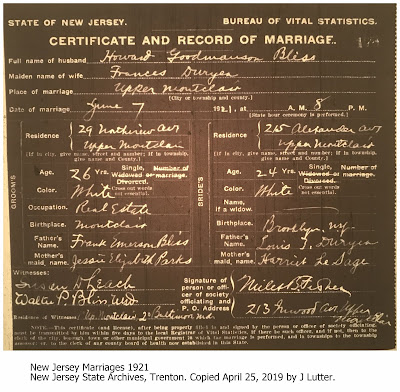 STATE OF NEW JERSEY. BUREAU OF VITAL STATISTICS.
CERTIFICATE AND RECORD OF MARRIAGE.
Full name of husband Howard Goodmanson Bliss
Maiden name of wife Frances Duryea
Place of marriage Upper Montclair
(City or township and county.)
Date of marriage June 7 1921, at A. M. 8 P. M.
(State hour ceremony is performed.)
GROOM'S
Residence 29 Ave
Upper Montclair
(If in city, give name, street and number; if in township, give name and County.)
Age, 26 Yrs. Single, Number of
Widowed or marriage.
Divorced.
Color. White Cross out words not essential.
Occupation. Real Estate
Birthplace. Montclair
Father's Name. Frank Emerson Bliss
Mother's maid, name. Jessie Elizabeth Parks
BRIDE'S
Residence 265 Alexander Ave
Upper Montclair
(If in city, give name, street and number; if in township, give name and County.)
Age. 24 Yrs. Single, Number of
Widowed or marriage.
Divorced.
Color. White Cross out words not essential.
Name, if a widow.
Birthplace. Brooklyn, NY.
Father's Name. Louis T. Duryea
Mother's maid, name. Harriet
Witnesses:
Leach
Walter P Bliss
Residence of Witnesses Up. Montclair, Baltimore Md.
Signature of person or officer of society officiating and P. O. Address
Miles
213 Inwood Ave Upper
NOTE.—This certificate (and license), after being properly filled in and signed by the person or officer of society officiating, must be transmitted by him within five days to the local Registrar of Vital Statistics, if there be such officer, and if not, then to the clerk of the city, borough, town or other municipal government in which the marriage has taken place, or if in a township or rural municipality, or to the clerk of any county board of health now established in this State.
New Jersey Marriages 1921
New Jersey State Archives, Trenton. Copied April 25, 2019 by J Lutter.